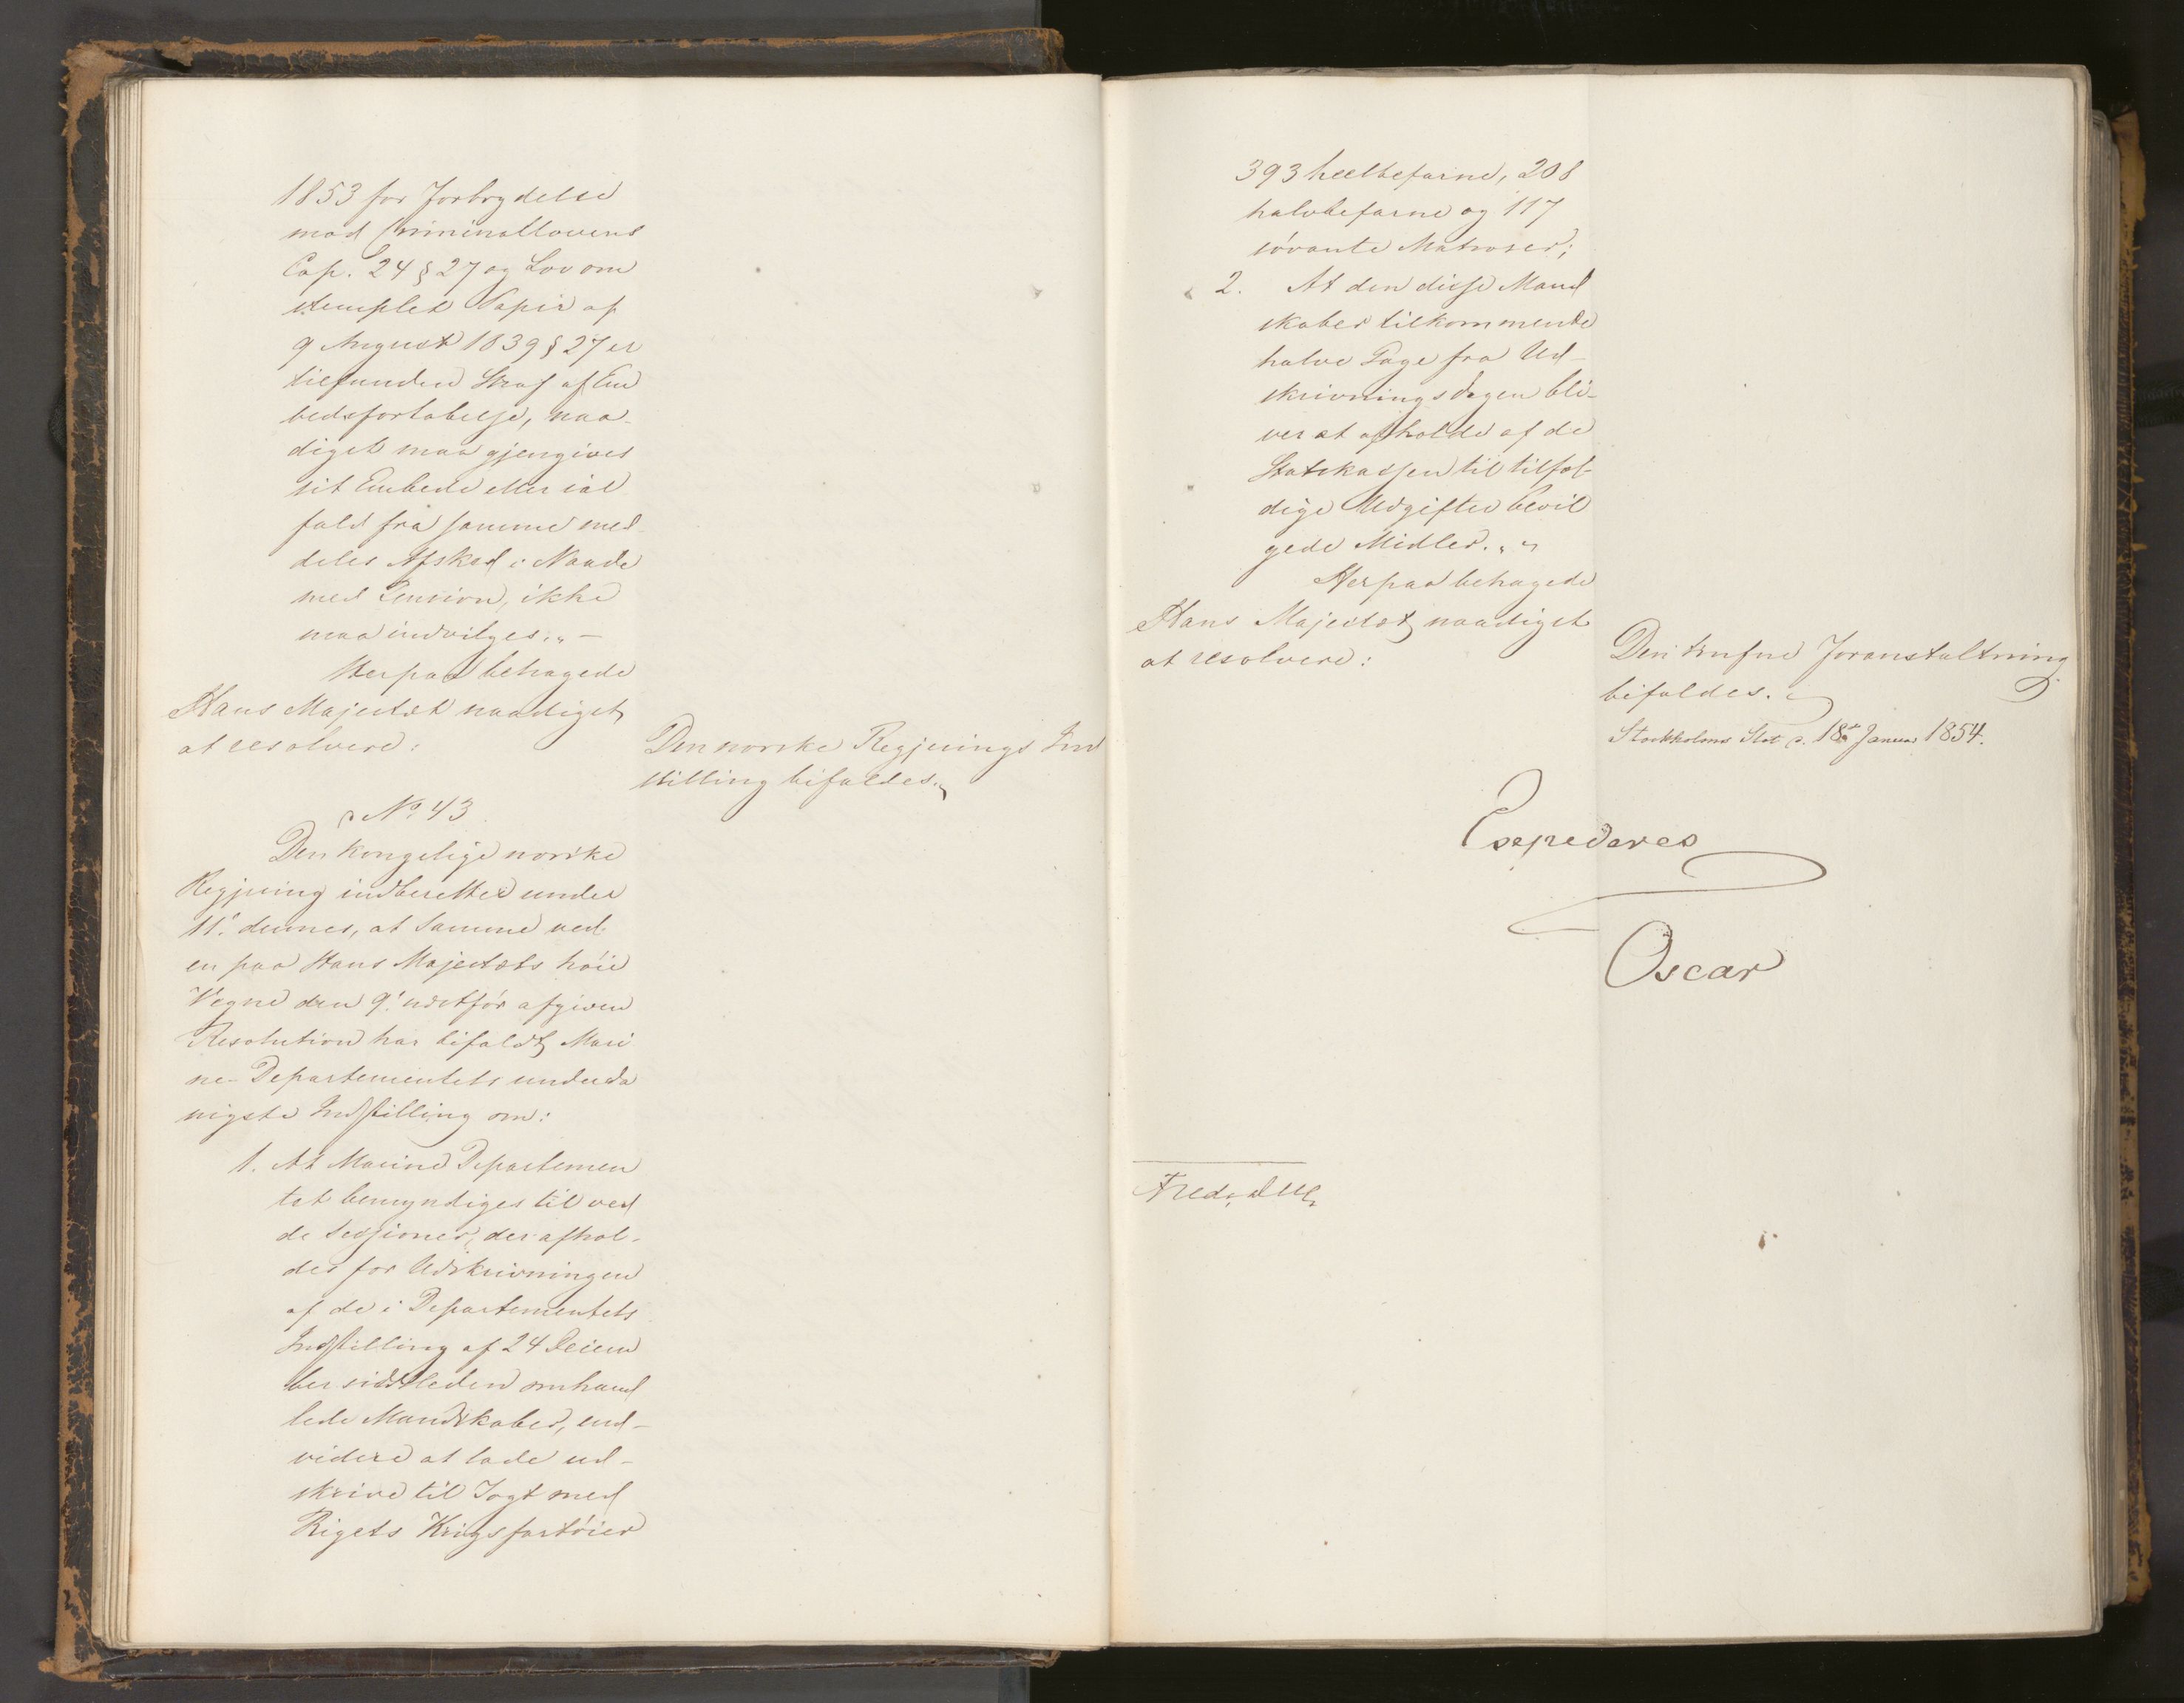 1853 for Forbrydelse
mod Criminallovens
Cap. 24 § 27 og Lov om
stemplet Papir af
9 August 1839 § 27 er
tilfunden Straf af Em
bedsfortabelse, naa-
digst maa gjengives
sit Embede eller ial
fald fra samme med
deles Afsked i Naade
med Pension, ikke
maa indvilges.„ —
Herpaa behagede
Hans Majestæt naadigst
at resolvere:
Den norske Regjerings Ind
stilling bifaldes.
No 43.
Den kongelige norske
Regjering indberetter under
11' dennes, at Samme ved
en paa Hans Majestæts høie
Vegne den 9' næstfør afgiven
Resolution har bifaldt Mari
ne-Departementets underda
nigste Indstilling om:
1. At Marine Departemen
tet bemyndiges til ved
de Sessioner, der afhol-
des for Udskrivningen
af de i Departementets
Indstilling af 24 Decem
ber sidstleden omhand
lede Mandskaber, end-
videre at lade ud-
skrive til Togt med
Rigets Krigsfartøier
393 heelbefarne, 208
halvbefarne og 117
søvante Matroser;
2. At den disse Mand
skaber tilkommende
halve Gage fra Ud-
skrivningsdagen bli-
ver at afholde af de
Statskassen til tilfæl-
dige Udgifter bevil
gede Midler. „ „
Herpaa behagede
Hans Majestæt naadigst
at resolvere:
Den trufne Foranstaltning
bifaldes.
Stockholms Slot d. 18de Januar 1854.
Expederes
Oscar